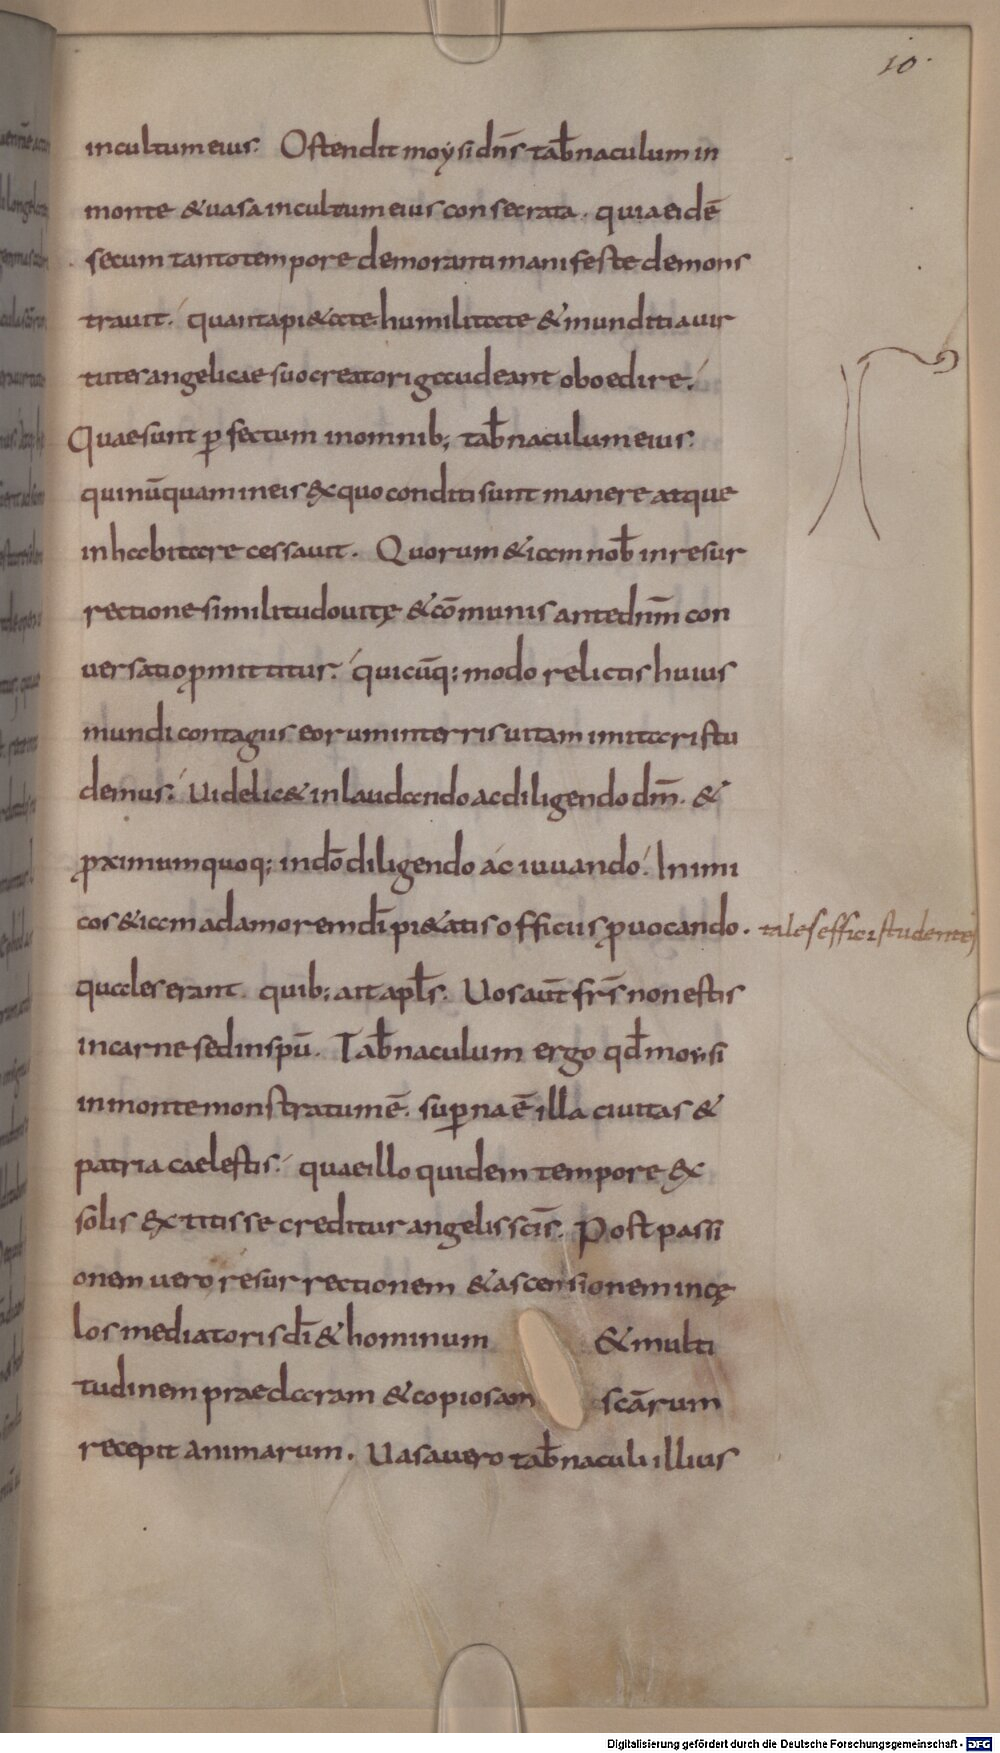 10.
incultum eius. Ostendit moysi dn̄s tab̄naculum in
monte & uasa in cultum eius consecrata. quia eidē
secum tanto tempore demoranti manifeste demons
trauit. quanta pi&ate. humilitate & munditia uir
tutes angelicae suo creatori gaudeant oboedire.
Quae sunt ꝑfectum in omnib; tab̄naculum eius.
qui nūquam in eis ex quo conditi sunt manere atque
inhabitare cessauit. Quorum &iam nob̄ in resur
rectione similitudo uitę & cōmunis ante dn̄m con
uersatio ꝓmittitur. quicūq; modo relictis huius
mundi contagiis eorum in terris uitam imitari stu
demus. Uidelic& in laudando ac diligendo dm̄. &
ꝓximum quoq; in dō diligendo ac iuuando. Inimi
cos &iam ad amorem dī pi&atis officiis ꝓuocando. tales effici studentes
quales erant. quib; ait apl̄s. Uos aūt frs̄ non estis
in carne sed in spū. Tab̄naculum ergo qd̄ moysi
in monte monstratum ē. suꝑna ē illa ciuitas &
patria caelestis. quae illo quidem tempore ex
solis extitisse creditur angelis scīs. Post passi
onem uero resurrectionem & ascensionem in cę
los mediatoris dī & hominum & multi
tudinem praeclaram & copiosam scārum
recepit animarum. Uasa uero tab̄naculi illius
Digitalisierung gefördert durch die Deutsche Forschungsgemeinschaft - DFG